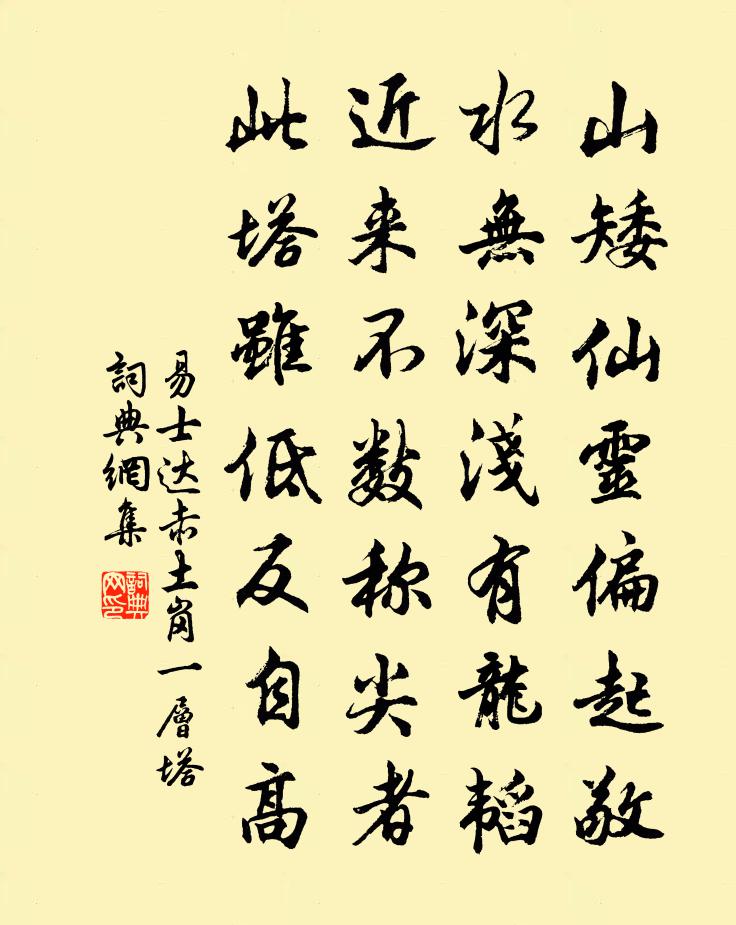 山矮仙靈偏起敬
水無深淺有龍韬
近来不数称尖者
此塔雖低反自高
易士达赤土崗一層塔
詞典網集
詞典网印